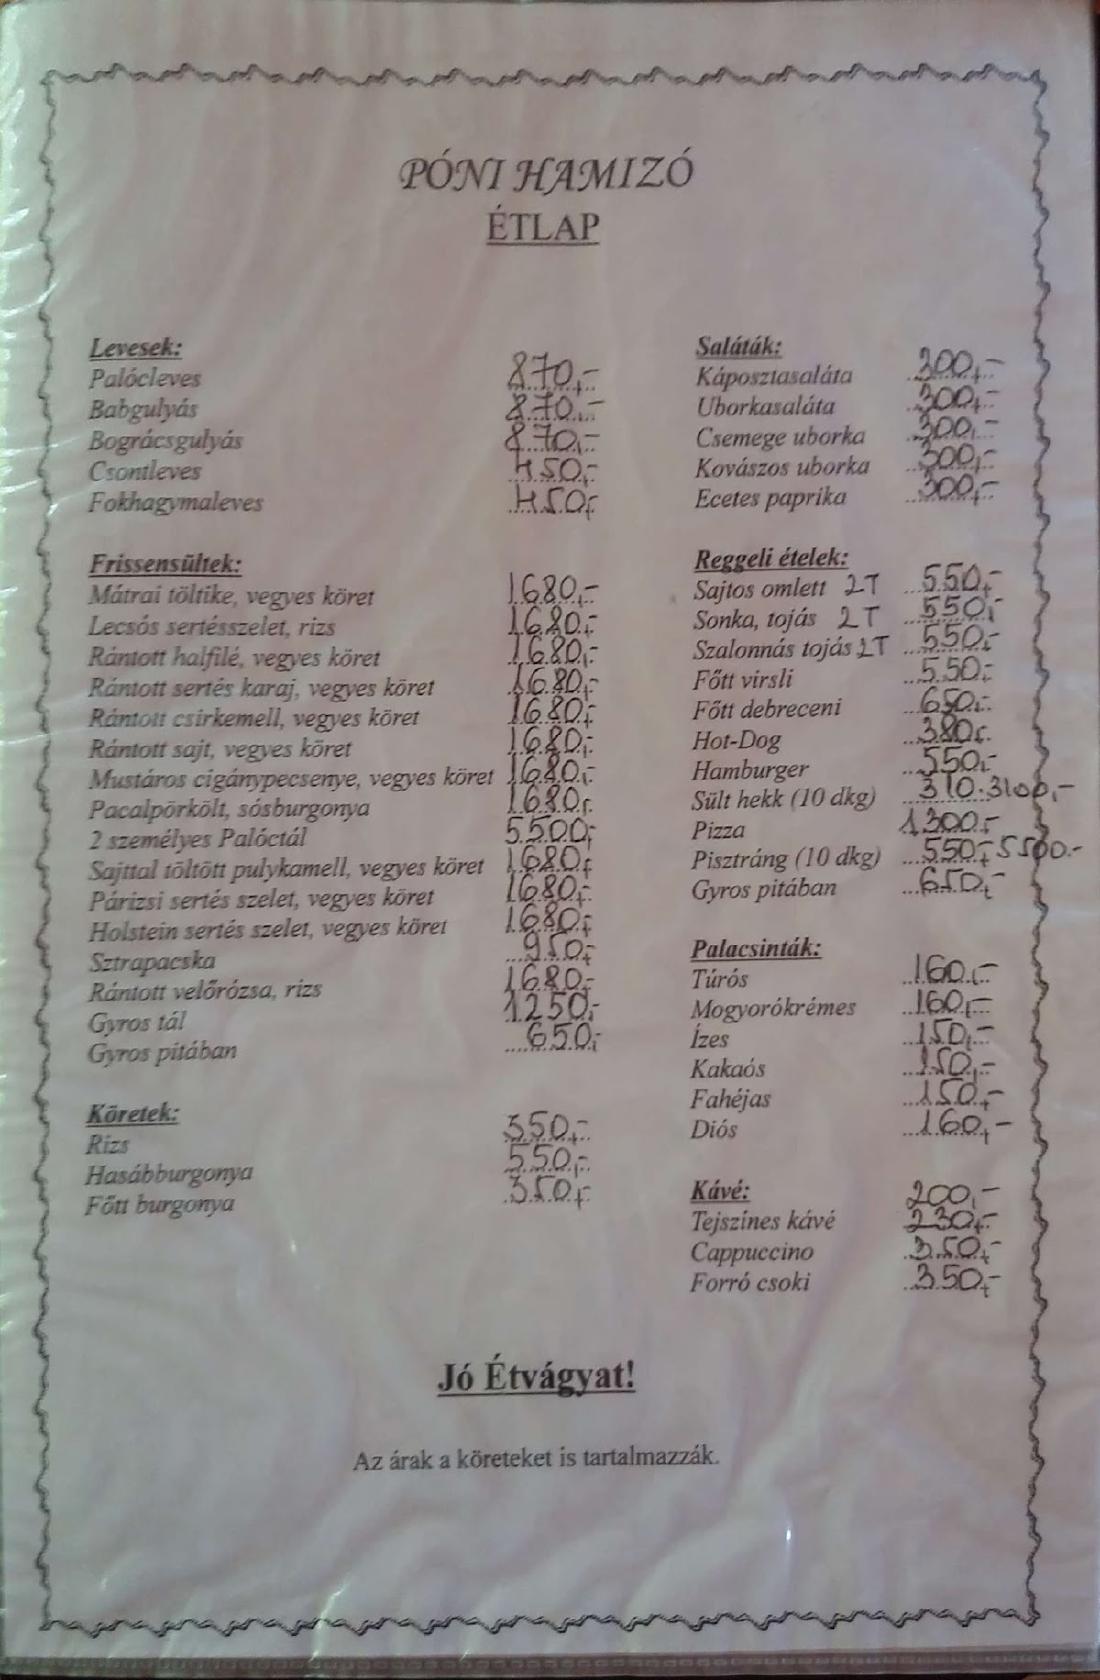 PÓNI HAMIZÓ
ÉTLAP
Levesek:
Palócleves 870,-
Babgulyás 870,-
Bográcsgulyás 870,-
Csontleves 450,-
Fokhagymaleves 450,-
Frissensültek:
Mátrai töltike, vegyes köret 1680,-
Lecsós sertésszelet, rizs 1680,-
Rántott halfilé, vegyes köret 1680,-
Rántott sertés karaj, vegyes köret 1680,-
Rántott csirkemell, vegyes köret 1680,-
Rántott sajt, vegyes köret 1680,-
Mustáros cigánypecsenye, vegyes köret 1680,-
Pacalpörkölt, sósburgonya 1680,-
2 személyes Palóctál 5500,-
Sajttal töltött pulykamell, vegyes köret 1680,-
Párizsi sertés szelet, vegyes köret 1680,-
Holstein sertés szelet, vegyes köret 1680,-
Sztrapacska 950,-
Rántott velőrózsa, rizs 1680,-
Gyros tál 1250,-
Gyros pitában 650,-
Köretek:
Rizs 350,-
Hasábburgonya 550,-
Főtt burgonya 350,-
Saláták:
Káposztasaláta 300,-
Uborkasaláta 300,-
Csemege uborka 300,-
Kovászos uborka 300,-
Ecetes paprika 300,-
Reggeli ételek:
Sajtos omlett 2T 550,-
Sonka, tojás 2T 550,-
Szalonnás tojás 2T 550,-
Főtt virsli 550,-
Főtt debreceni 650,-
Hot-Dog 380,-
Hamburger 550,-
Sült hekk (10 dkg) 310.3100,-
Pizza 1300,-
Pisztráng (10 dkg) 550,-5500.-
Gyros pitában 650,-
Palacsinták:
Túrós 160,-
Mogyorókrémes 160,-
Ízes 150,-
Kakaós 150,-
Fahéjas 150,-
Diós 160,-
Kávé: 200,-
Tejszínes kávé 230,-
Cappuccino 350,-
Forró csoki 350,-
Jó Étvágyat!
Az árak a köreteket is tartalmazzák.